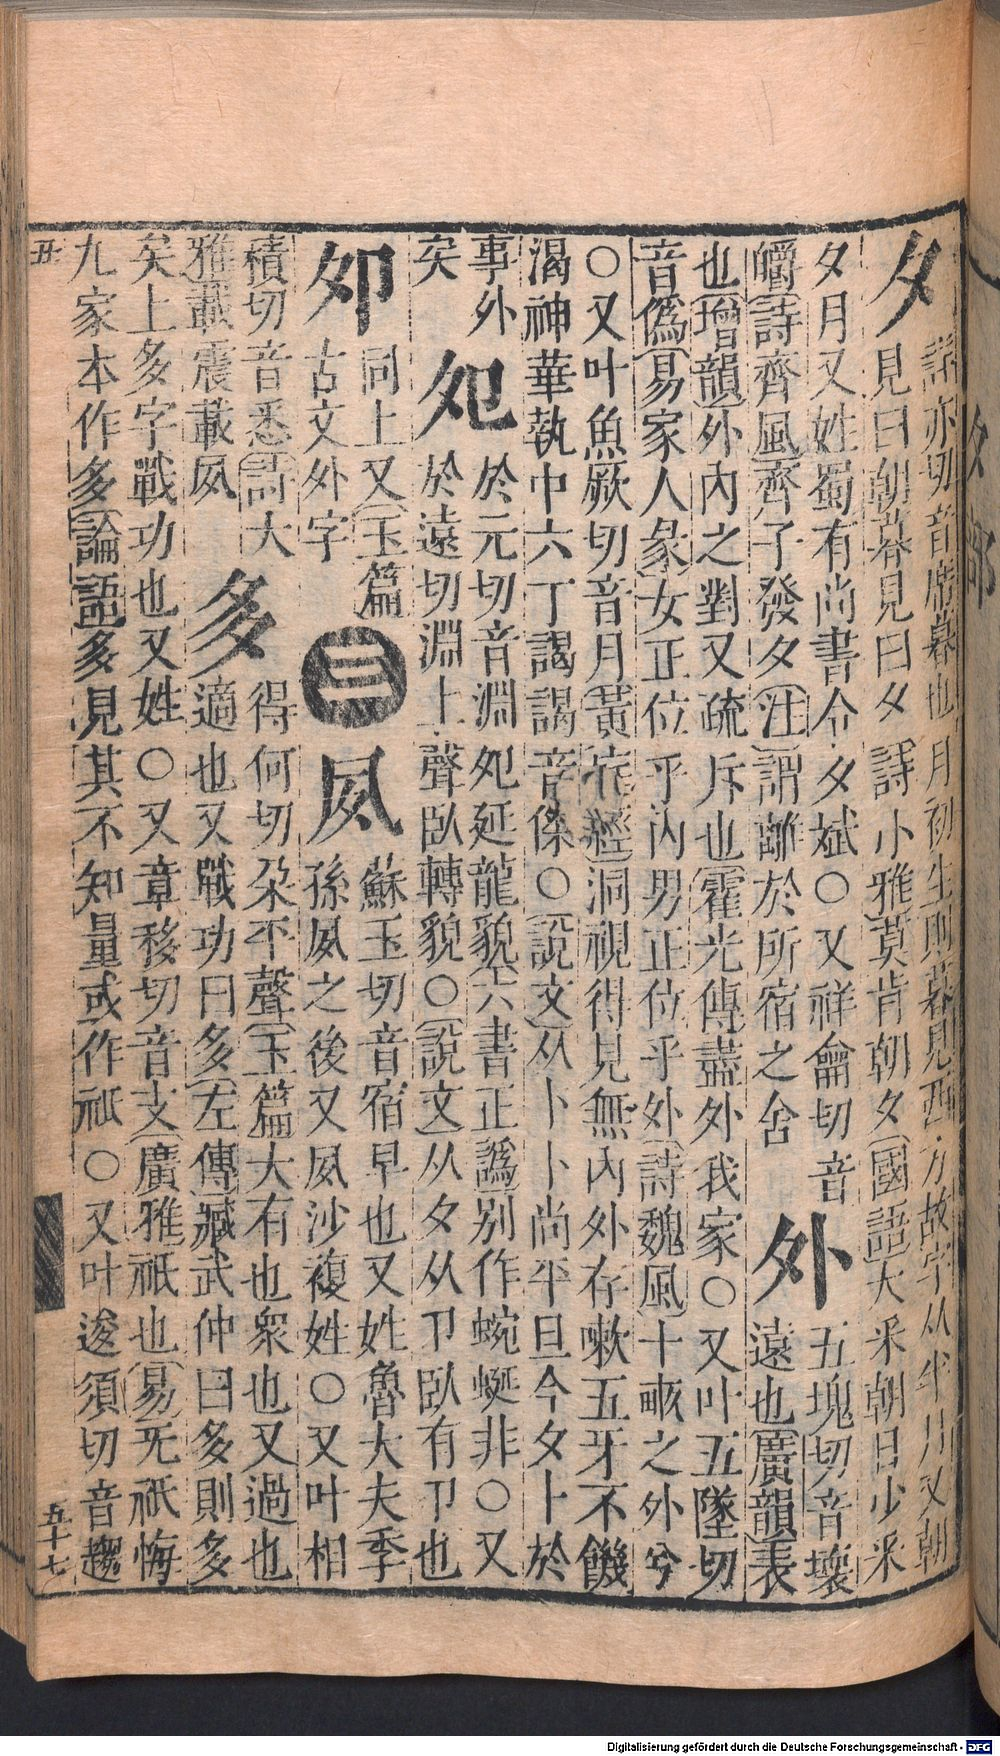 夕 詳亦切音席暮也月初生則暮見西方故字从半月又朝
見曰朝暮見曰夕詩小雅莫肯朝夕國語大采朝日少采
夕月又姓蜀有尚書令夕斌○又祥龠切音
嚼詩齊風齊子發夕注謂離於所宿之舍
外 五塊切音壞
遠也廣韻表
也增韻外內之對又疏斥也霍光傳盡外我家○又叶五墜切
音僞易家人彖女正位乎內男正位乎外詩魏風十畞之外兮
○又叶魚厥切音月黃庭經洞視得見無內外存嗽五牙不饑
渴神華執中六丁謁謁音傑○說文从卜卜尚平旦今夕卜於
事外
矣
夗 於元切音淵夗延龍貌六書正譌別作蜿蜒非○又
於遠切淵上聲臥轉貌○說文从夕从卩臥有卩也
夘 同上又玉篇
古文外字
三
夙 蘇玉切音宿早也又姓魯大夫季
孫夙之後又夙沙複姓○又叶相
積切音悉詩大
雅載震載夙
多 得何切朶平聲玉篇大有也衆也又過也
適也又戰功曰多左傳臧武仲曰多則多
矣上多字戰功也又姓○又章移切音支廣雅祇也易无祇悔
九家本作多論語多見其不知量或作祇○又叶逡須切音趨
丑
五十七
夕部
Digitalisierung gefördert durch die Deutsche Forschungsgemeinschaft - DFG